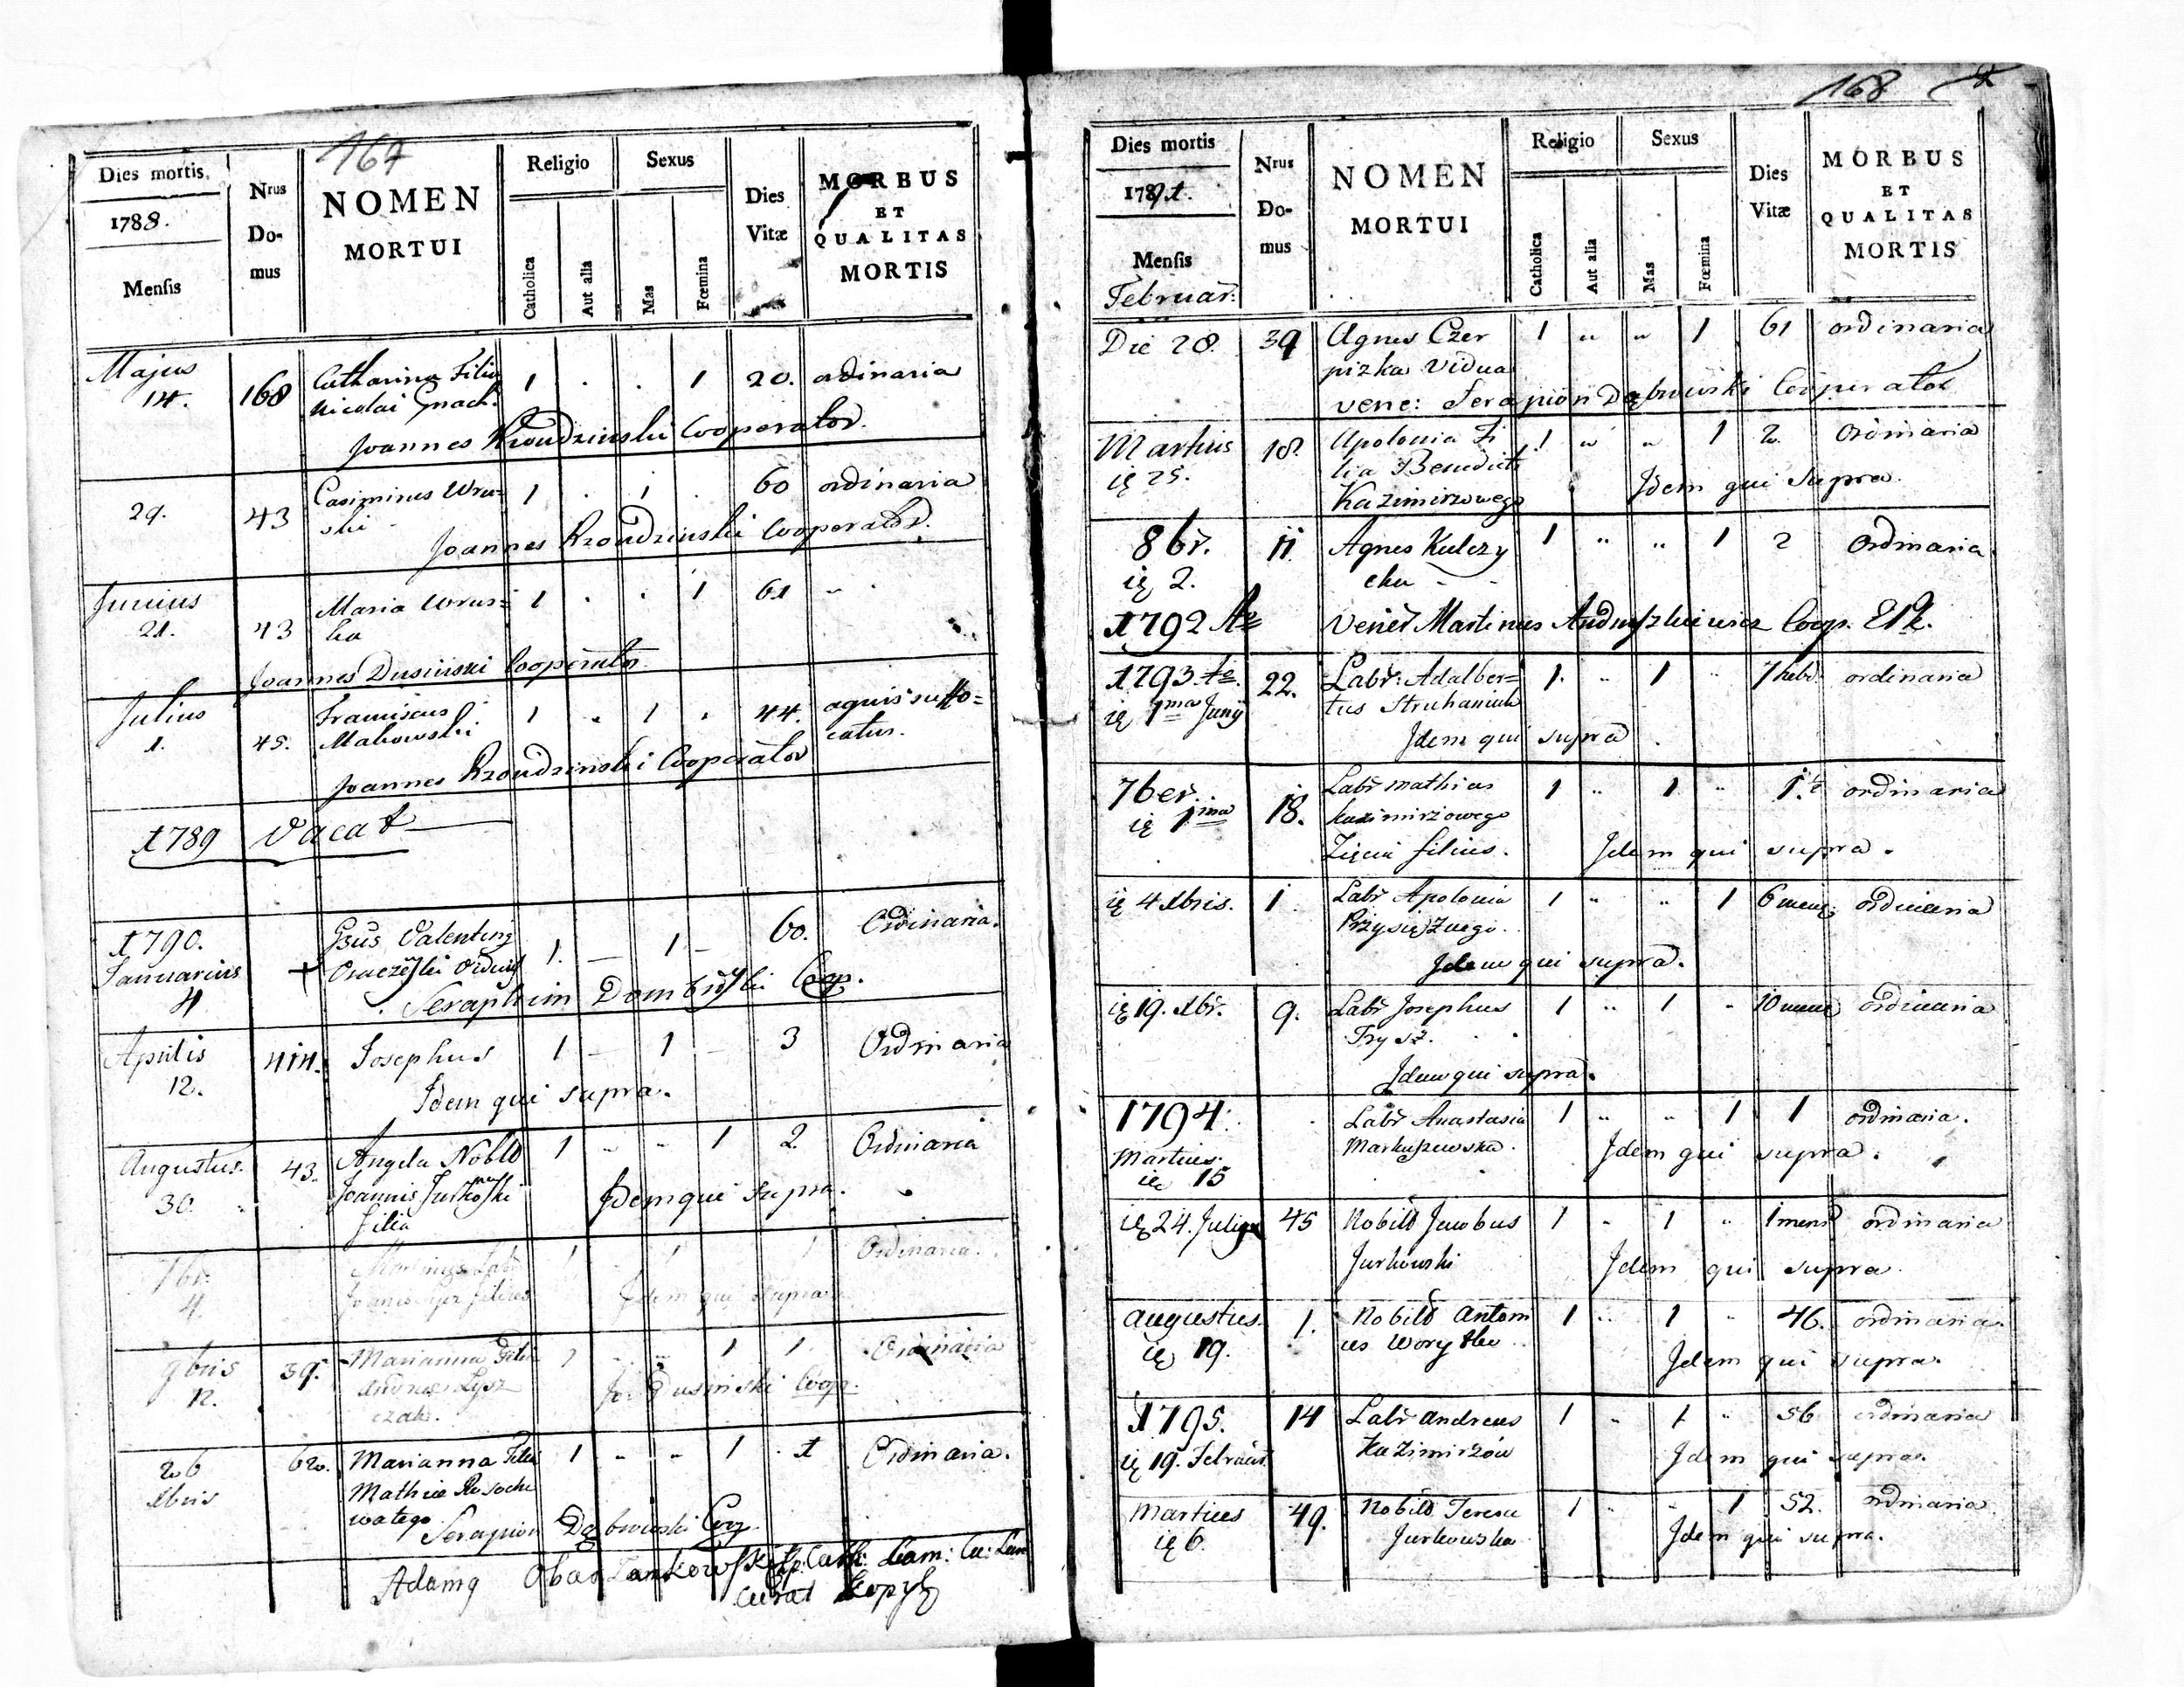 167
Dies mortis
1788.
Mensis
Nrus Domus
NOMEN MORTUI
Religio
Catholica
Aut alia
Sexus
Mas
Fœmina
Dies Vitæ
MORBUS ET QUALITAS MORTIS
Majus 14. 168 Catharina Filia 1 . . 1 20. ordinaria
Nicolai Gnach
Joannes Kzoudzinski Cooperator.
29. 43 Casimirus Wru= 1 . 1 . 60 ordinaria
ski
Joannes Kzoudzinski Cooperator.
Junius 21. 43 Maria Wrus= 1 . . 1 61
ka
Joannes Dusinski Cooperator
Julius 1. 45. Franciscus 1 . 1 . 44. aquis suffo=
Makowski catus.
Joannes Kzoudzinski Cooperator
1789 Vacat
1790.
Januarius 4 Valentinus 1. — 1 — 60. Ordinaria.
Seraphim Dombrowski Coop.
Aprilis 12. 414. Josephus 1 — 1 — 3 Ordinaria
Idem qui supra.
Augustus 30. 43. Angela Nobld 1 „ „ 1 2. Ordinaria
Joannis Jurkowski
filia
Idem qui supra.
7br. 4. 1 1 1 Ordinaria.
Joannis filius
Idem qui supra
9bris 12. 39. Marianna Filia 1 „ „ 1 1 Ordinaria
Andreæ Lysz
czak.
Jo: Dusinski Coop.
26 Xbris 62. Marianna Filia 1 „ „ 1 1 Ordinaria.
Mathiæ Rosocho
watego
Serapion Dąbrowski Coop.
168
Dies mortis
1791.
Mensis
Februar:
Nrus Domus
NOMEN MORTUI
Religio
Catholica
Aut alia
Sexus
Mas
Fœmina
Dies Vitæ
MORBUS ET QUALITAS MORTIS
Die 28. 39 Agnes Czer 1 „ „ 1 61 ordinaria
pizka Vidua
vene: Serapion Dąbrowski Cooperator
Martius ię 25. 18. Apolonia Fi 1 „ „ 1 2. Ordinaria
lia Benedicti
Kazimirzowego
Idem qui supra.
8br. ię 2. 11. Agnes Kulczy 1 „ „ 1 2 Ordinaria
cka
1792 Ao Vener Martinus Andruszkiewicz Coop.
1793 Ao. ię 1ma Junÿ 22. Labr: Adalber= 1. „ 1 „ 7 hebd ordinaria
tus Struhaniuk
Idem qui supra
7ber. ię 1ma 18. Labr Mathias 1 „ 1 „ ordinaria
Kazimirzowego
Zięcia filius.
Idem qui supra.
ię 4 Xbris. 1 Labr Apolonia 1 „ „ 1 6 mens ordinaria
Przysiężnego.
Idem qui supra.
ię 19. Xbr. 9. Labr Josephus 1 „ 1 „ 10 mens ordinaria
Trysz.
Idem qui supra.
1794.
Martius ię 15 Labr Anastasia 1 „ „ 1 1 ordinaria.
Markuszewska.
Idem qui supra.
ię 24. Julÿ 45 Nobild Jacobus 1 „ 1 „ 1 mens ordinaria
Jurkowski
Idem qui supra
Augustus ię 19. 1. Nobild Antoni 1 „ 1 „ 46. ordinaria.
us Worytko
Idem qui supra.
1795. ię 19. Februar. 14 Labr Andreas 1 „ 1 „ 56 ordinaria
Kazimirzow
Idem qui supra.
Martius ię 6. 49. Nobild Teresa 1 „ „ 1 52. ordinaria
Jurkowska
Idem qui supra.